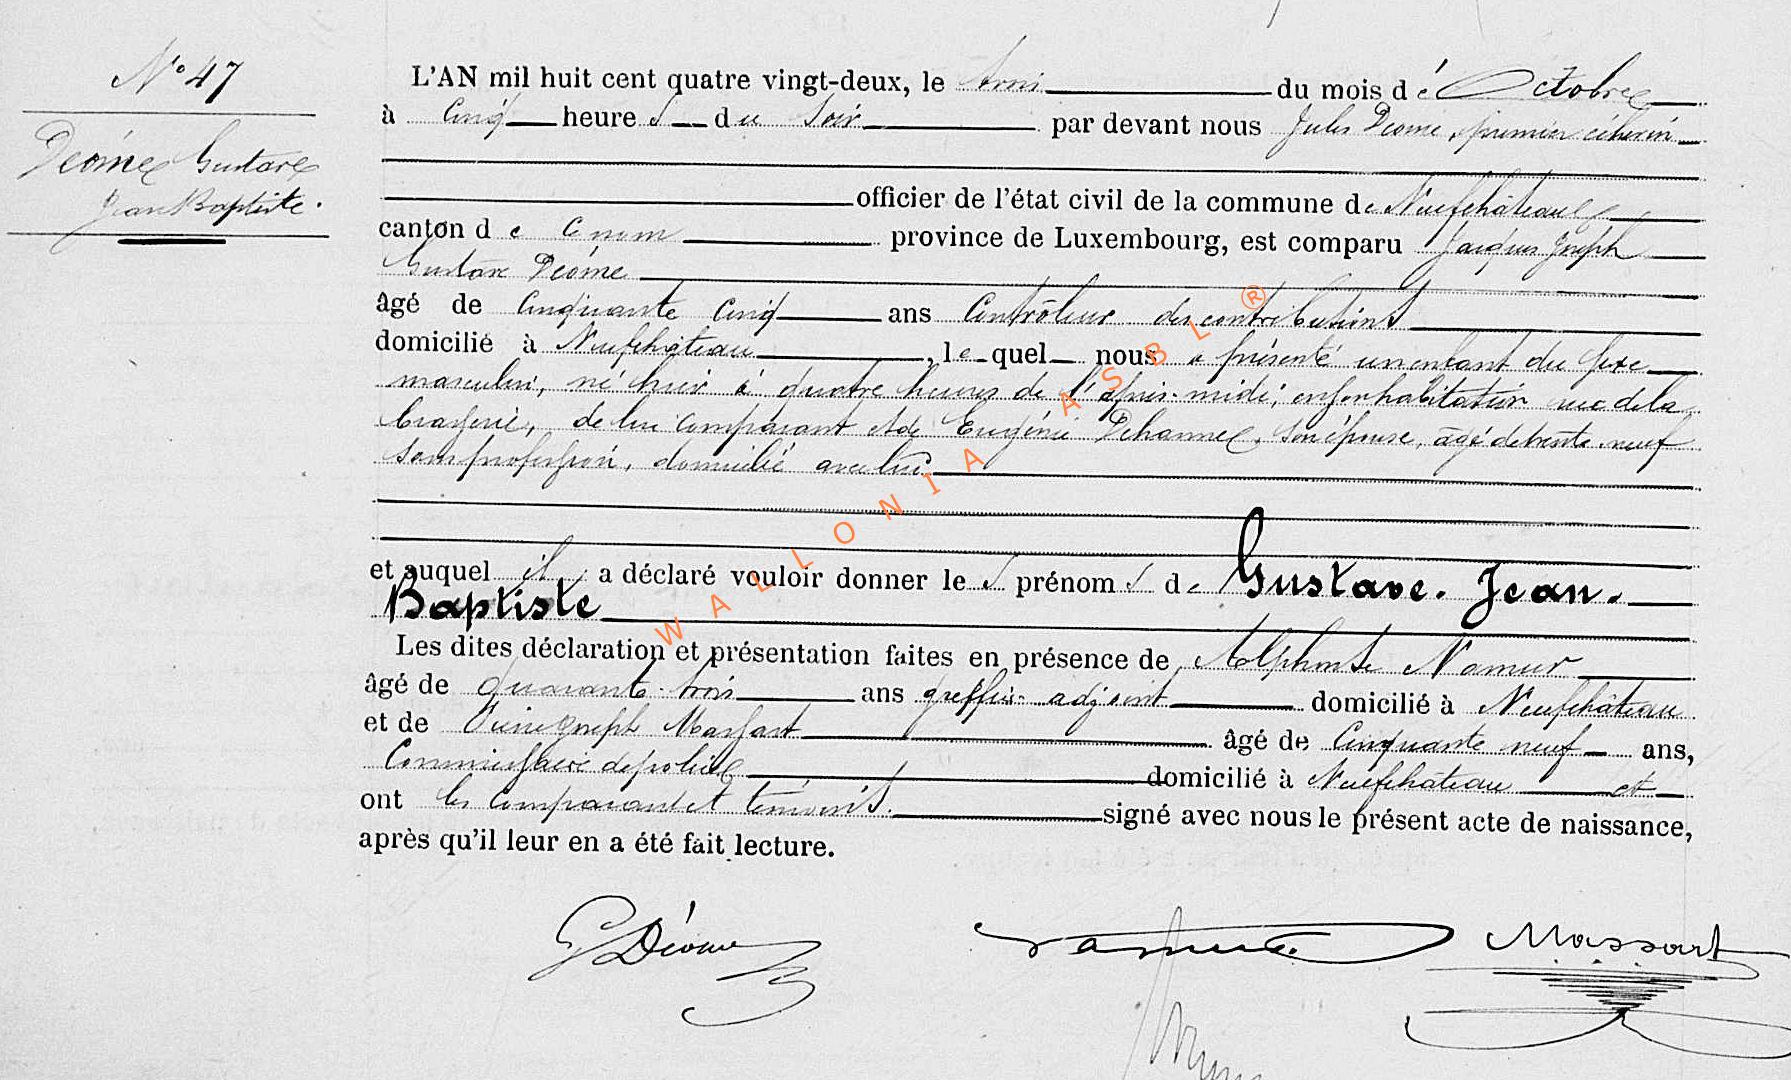 N° 47
Déome Gustave
Jean Baptiste.
L'AN mil huit cent quatre vingt-deux, le trois du mois d'Octobre
à cinq heures du soir par devant nous Jules Déome, premier échevin
officier de l'état civil de la commune de Neufchâteau
canton de ce nom province de Luxembourg, est comparu Jacques Joseph
Gustave Déome
âgé de cinquante cinq ans Contrôleur des contributions
domicilié à Neufchâteau, lequel nous a présenté un enfant du sexe
masculin, né hier à quatre heures de l'après-midi, en son habitation rue de la
brasserie, de lui comparant et de Eugénie Dehanne, son épouse, âgé de trente neuf
sans profession, domicilié avec lui
et auquel il a déclaré vouloir donner les prénoms de Gustave. Jean.
Baptiste
Les dites déclaration et présentation faites en présence de Alphonse Namur
âgé de quarante trois ans greffier adjoint domicilié à Neufchâteau
et de Pierre Joseph Massart âgé de Cinquante neuf ans,
Commissaire de police domicilié à Neufchâteau et
ont les comparant et témoins. signé avec nous le présent acte de naissance,
après qu'il leur en a été fait lecture.
G Déome
Namur
Massart
WALLONIA ASBL ®